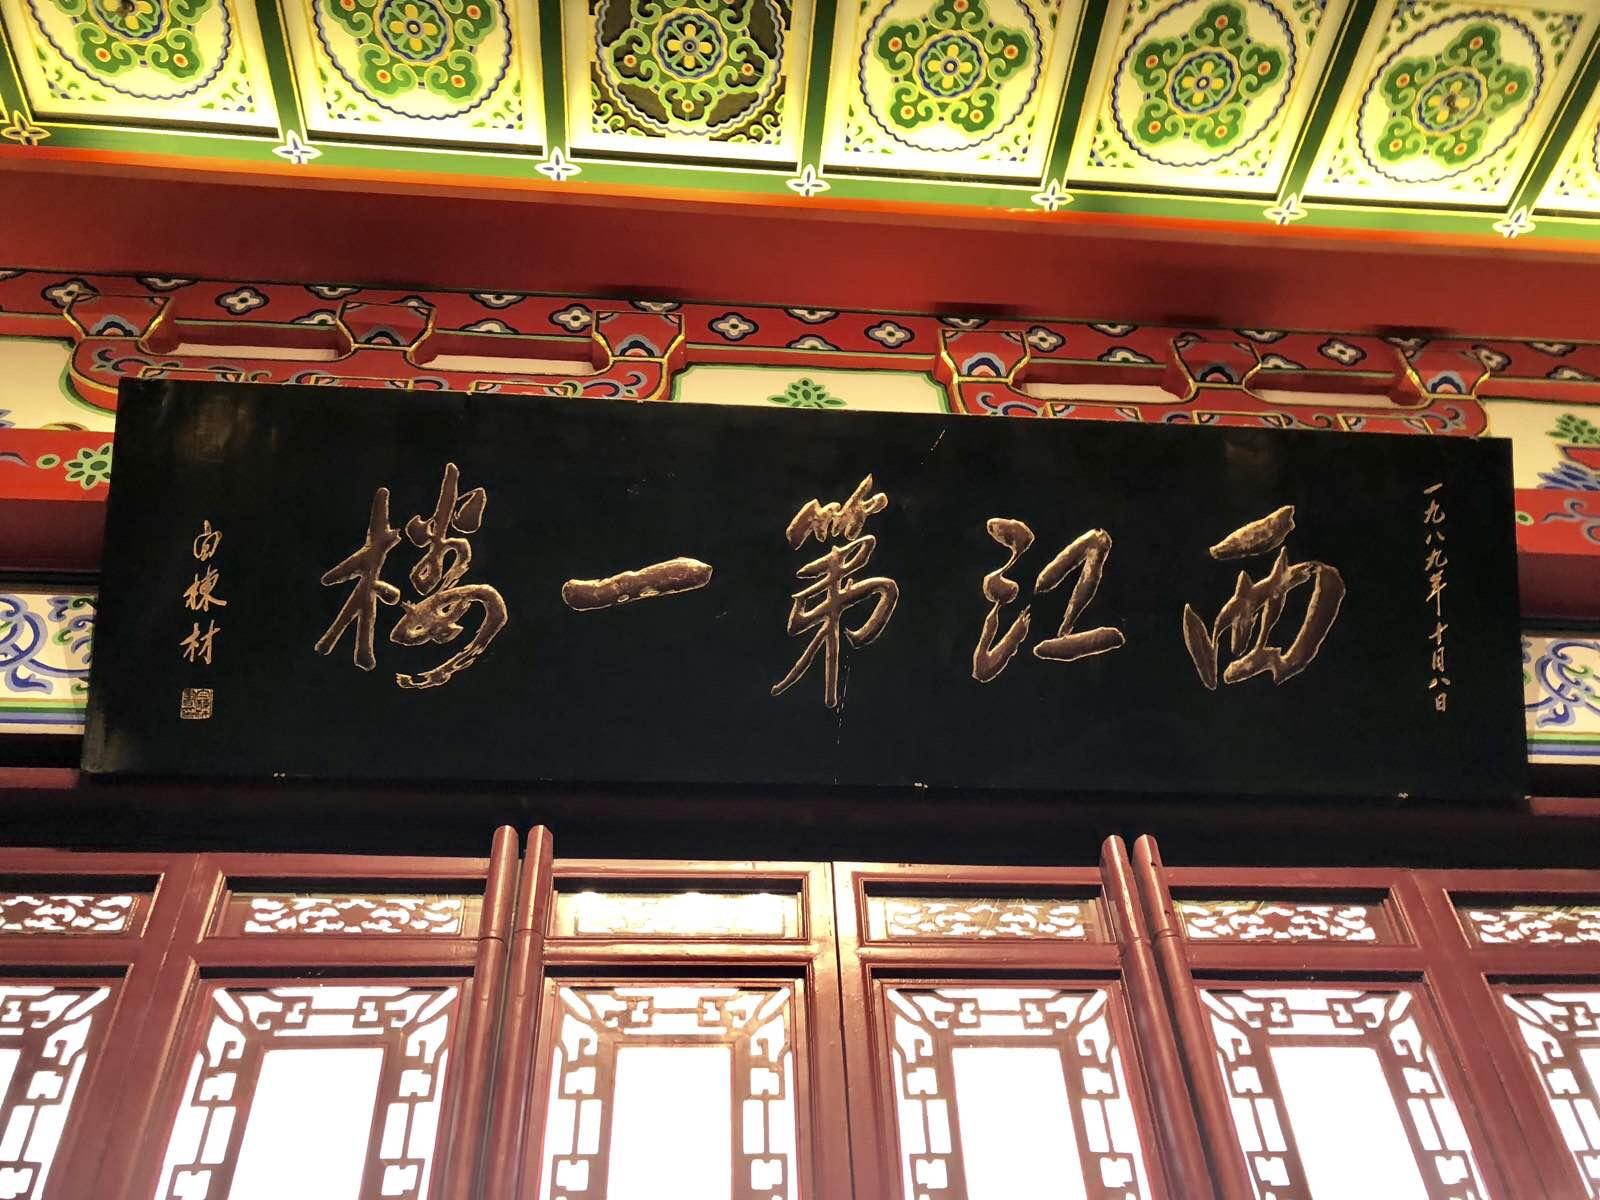 一九八九年十月八日
西江第一楼
白棟材